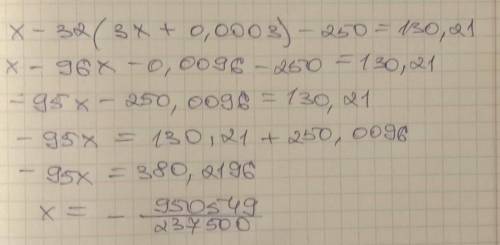 x - 32(3x + 0,0003) - 250 = 130,21
x - 96x - 0,0096 - 250 = 130,21
- 95x - 250,0096 = 130,21
- 95x = 130,21 + 250,0096
- 95x = 380,2196
x = - 950549/237500